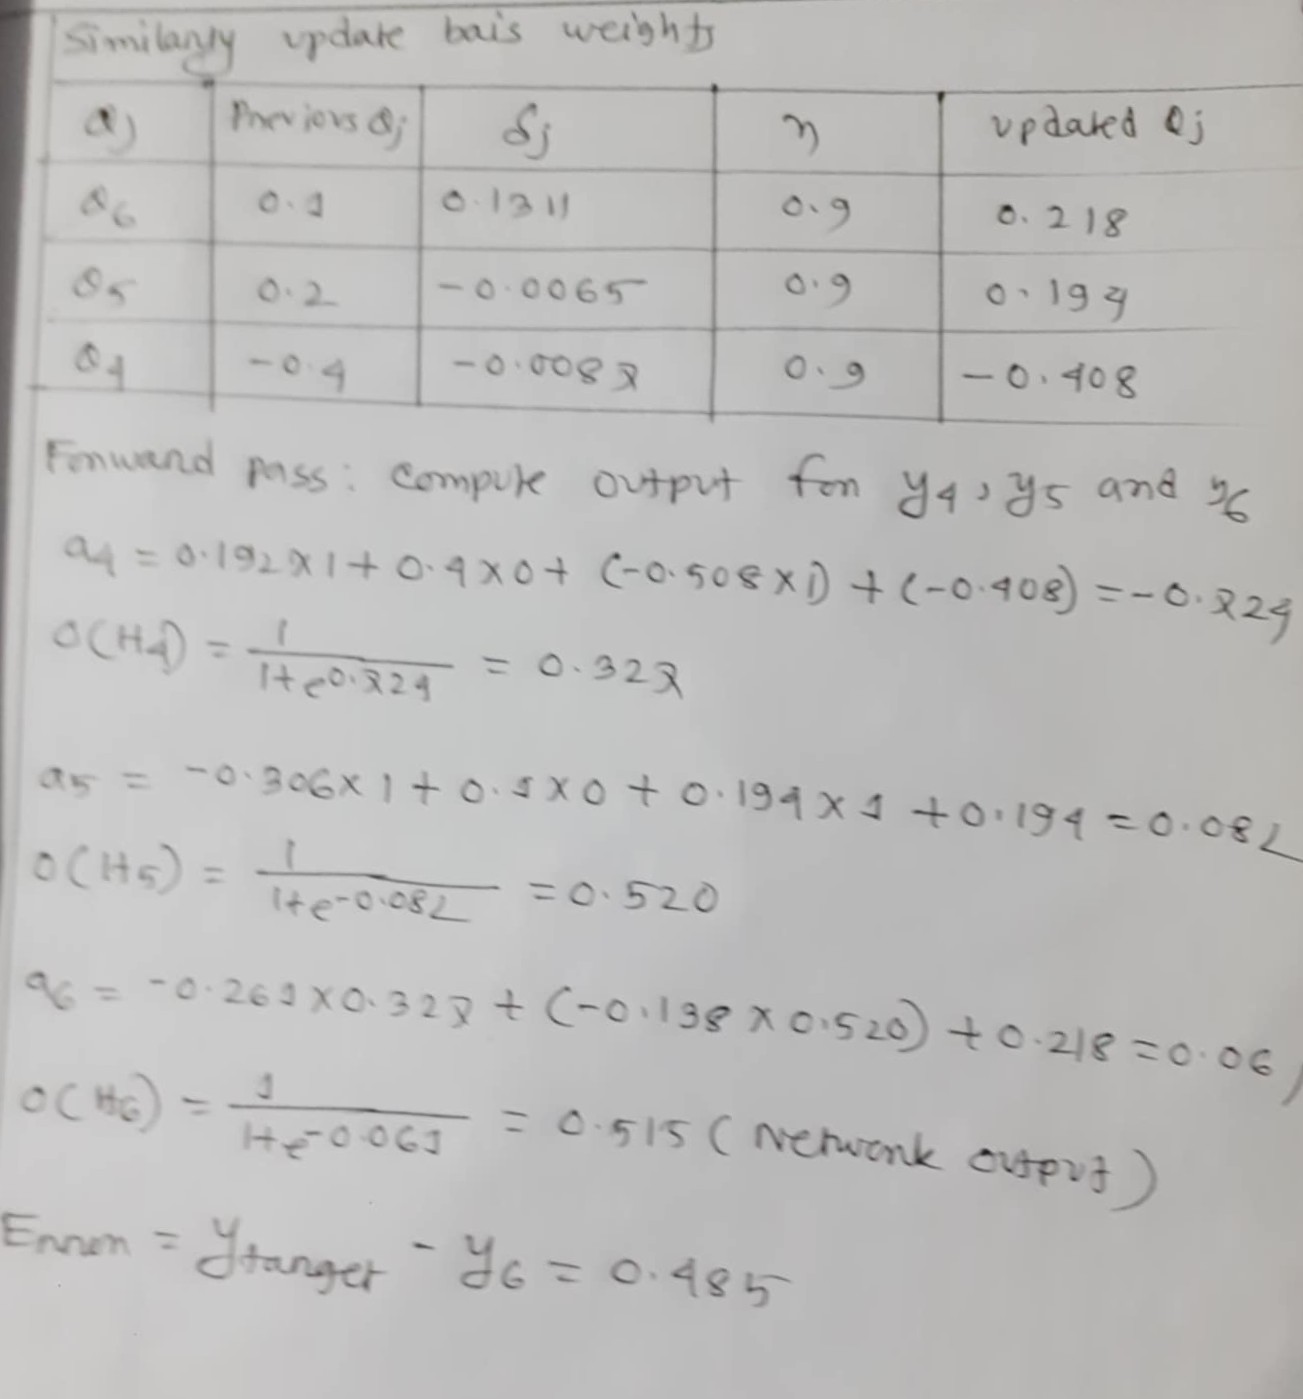 Similarly update bais weights
θj Previous θj δj η updated θj
θ6 0.1 0.1311 0.9 0.218
θ5 0.2 -0.0065 0.9 0.194
θ4 -0.4 -0.0087 0.9 -0.408
Forward pass: compute output for y4, y5 and y6
a4 = 0.192×1 + 0.4×0 + (-0.508×1) + (-0.408) = -0.724
O(H4) = 1/1+e^0.724 = 0.327
a5 = -0.306×1 + 0.1×0 + 0.194×1 + 0.194 = 0.082
O(H5) = 1/1+e^-0.082 = 0.520
a6 = -0.261×0.327 + (-0.138×0.520) + 0.218 = 0.061
O(H6) = 1/1+e^-0.061 = 0.515 (Network output)
Error = ytarget - y6 = 0.485